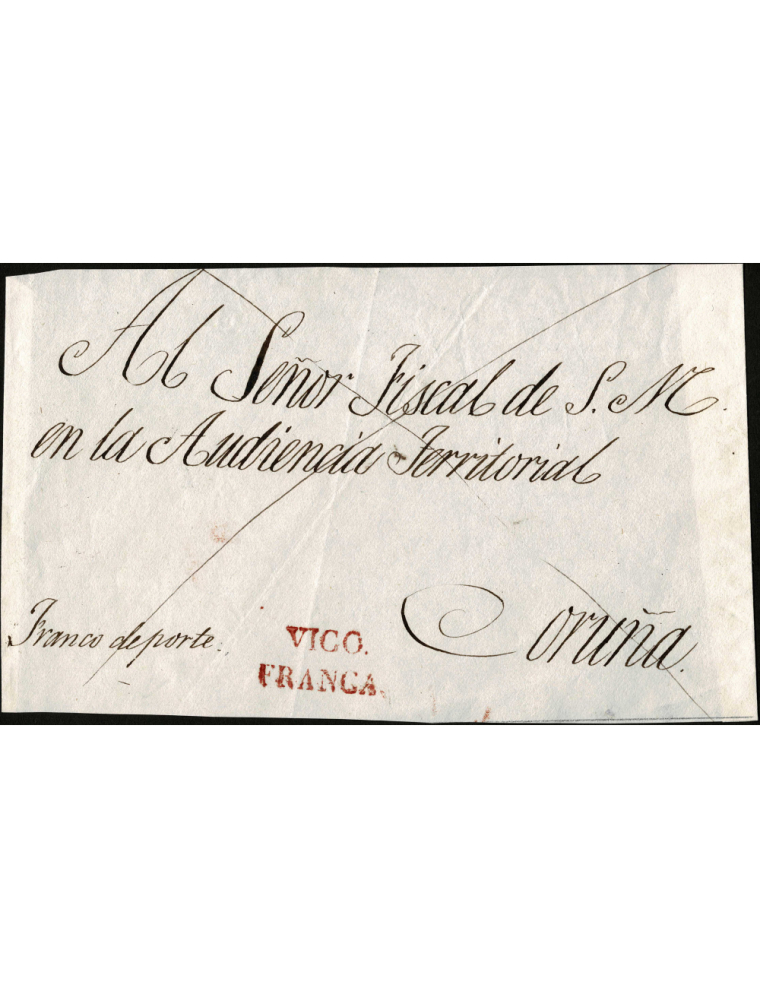 Al Señor Fiscal de S. M.
en la Audiencia Territorial
Coruña.
Franco de porte.
VIGO.
FRANCA.